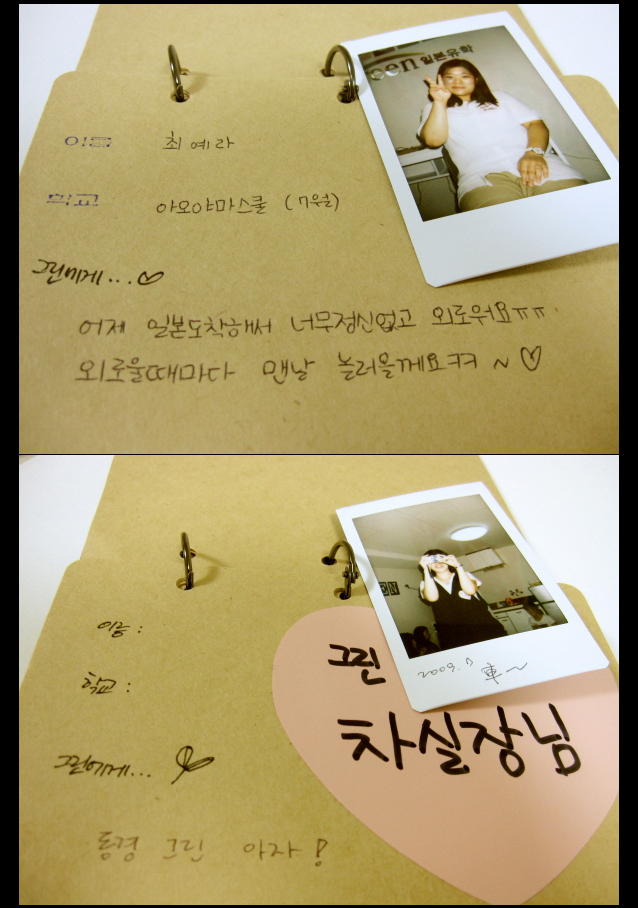 een 일본유학
이름 최예라
학교 아오야마스쿨 (7월)
그린에게... ♡
어제 일본도착해서 너무정신없고 외로워요ㅠㅠ.
외로울때마다 맨날 놀러올께요ㅋㅋ ~ ♡
EN
2009.7 車~
이름 :
학교 :
그린
차실장님
그린에게...
동경 그린 아자 !